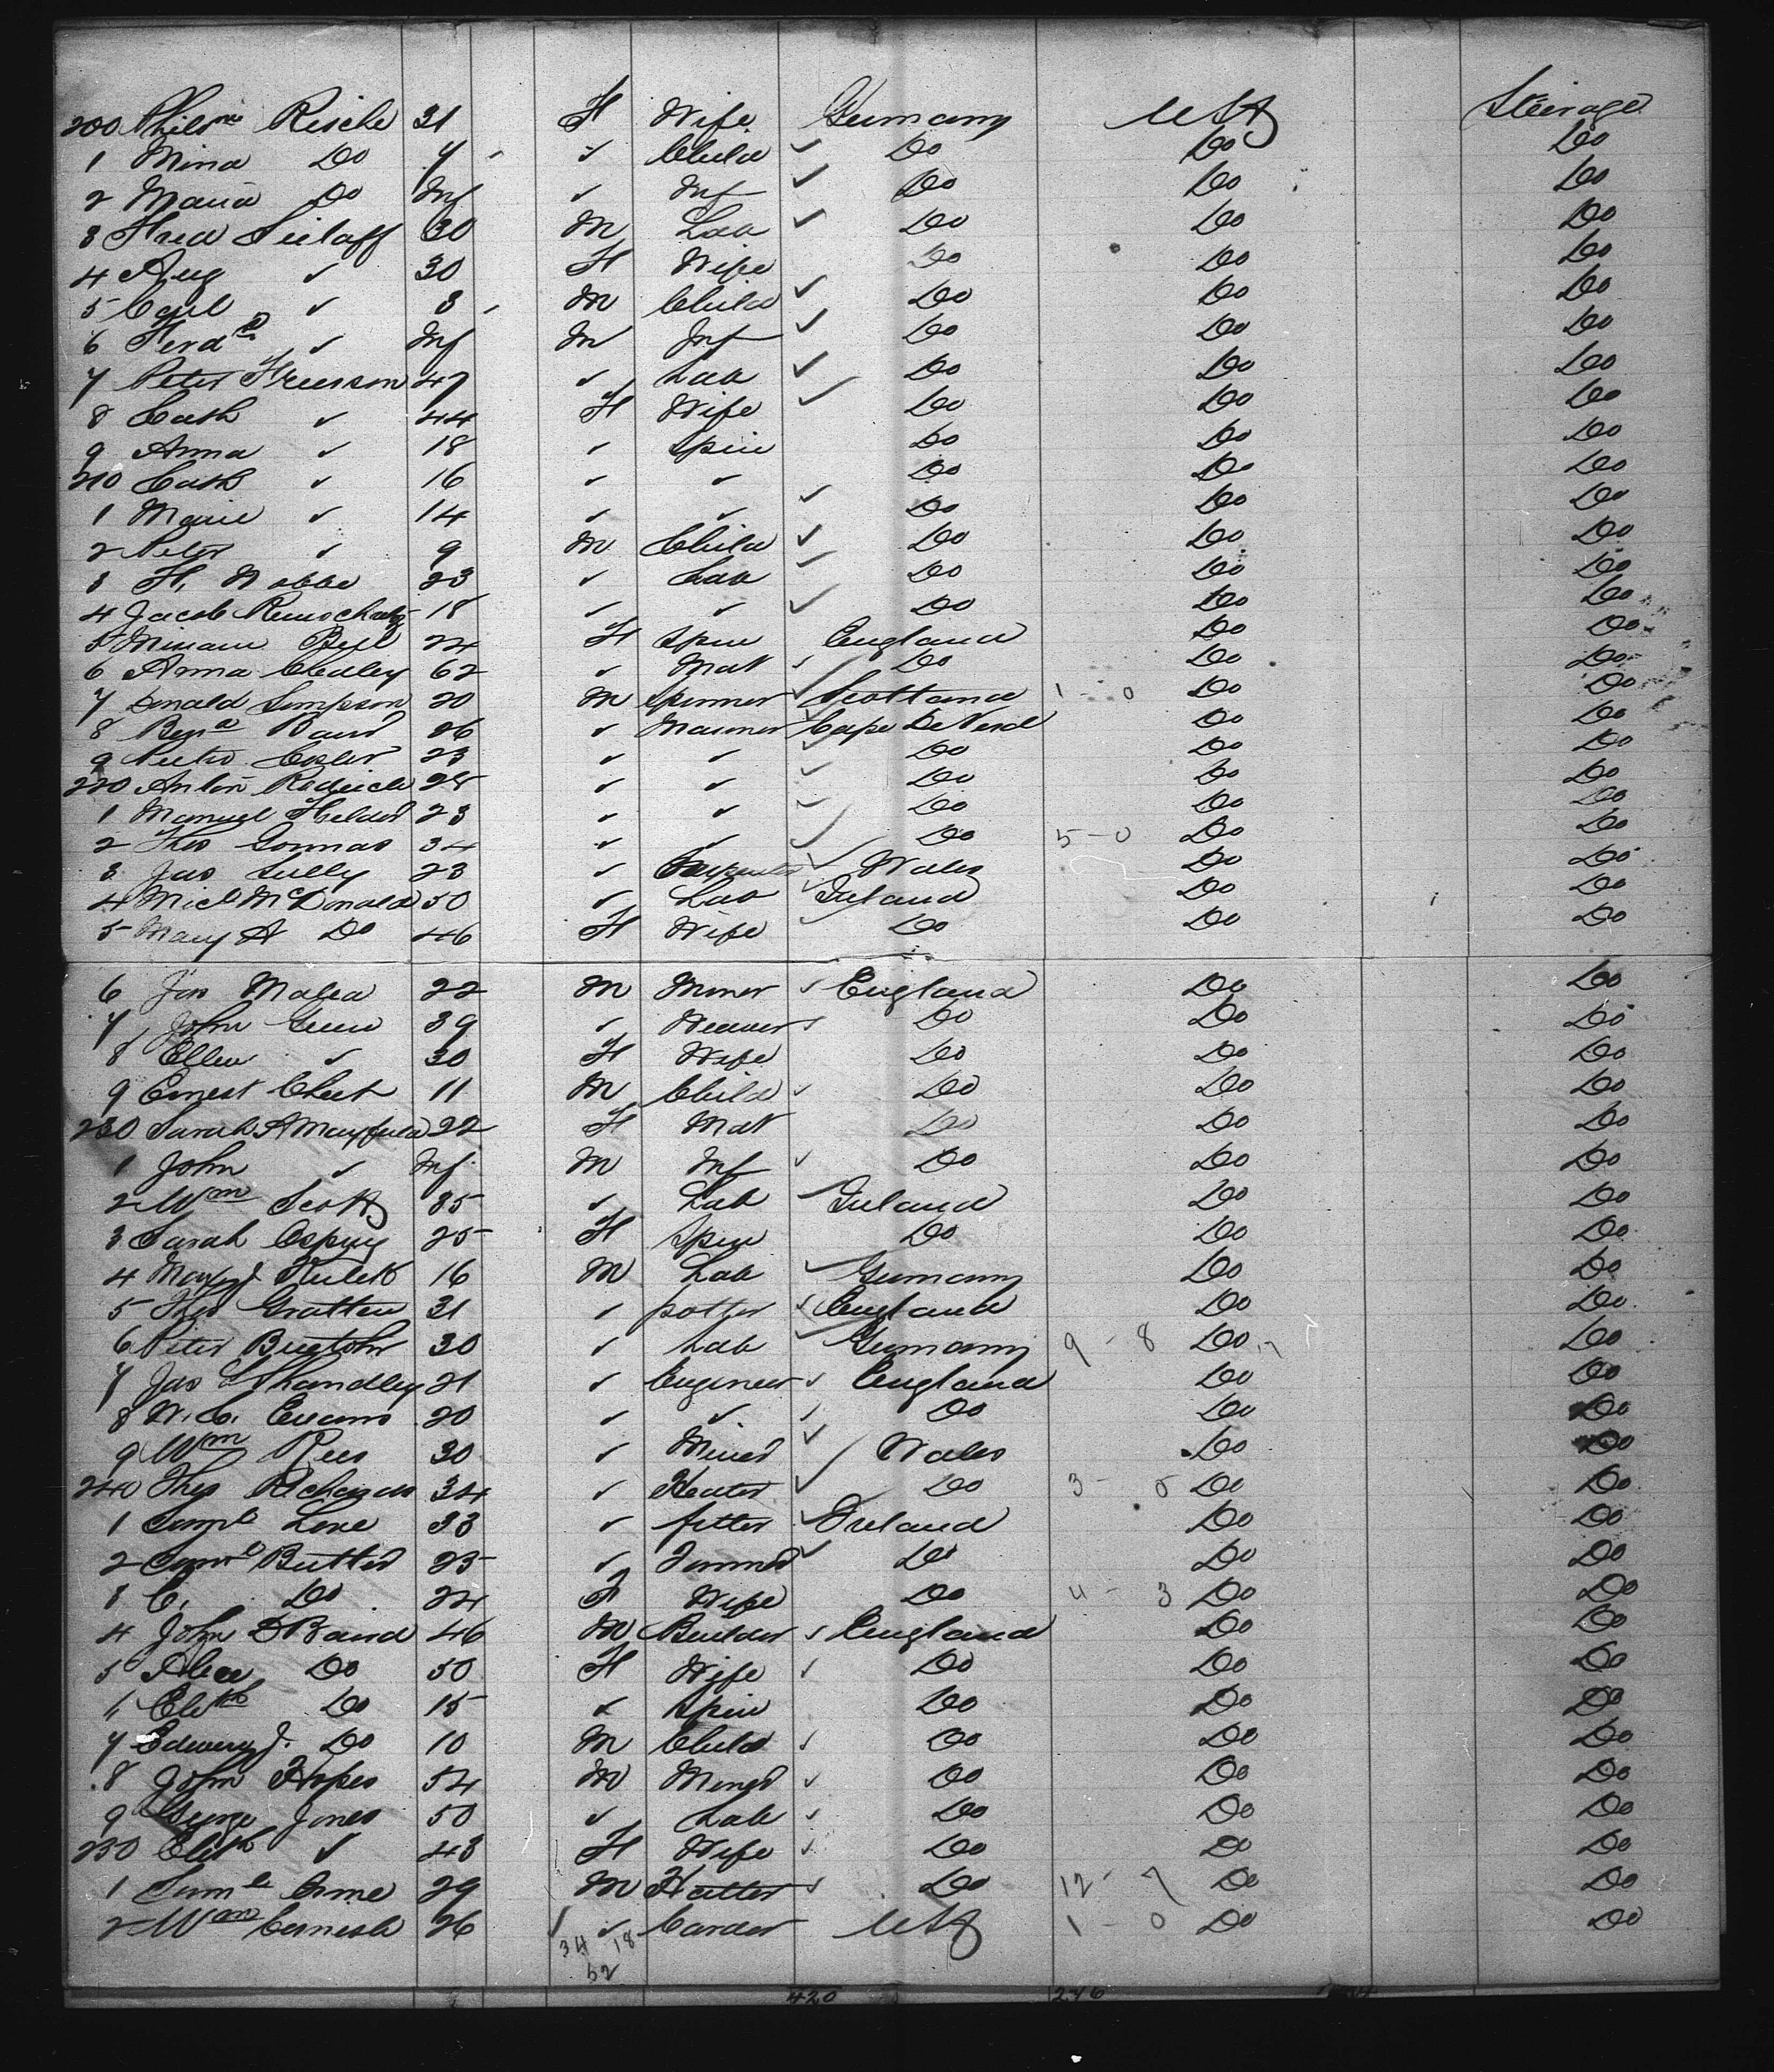 200 Philne Risch 31 F Wife Germany USA Steerage
1 Mina Do 7 ✓ Child ✓ Do Do Do
2 Maria Do Inf ✓ Inf ✓ Do Do Do
3 Fred Seilaff 30 M Lab ✓ Do Do Do
4 Aug ✓ 30 F Wife Do Do Do
5 Carl ✓ 3 M Child ✓ Do Do Do
6 Ferdd ✓ Inf M Inf ✓ Do Do Do
7 Peter 47 ✓ Lab ✓ Do Do Do
8 Cath ✓ 44 F Wife ✓ Do Do Do
9 Anna ✓ 18 ✓ Spin Do Do Do
210 Cath ✓ 16 ✓ ✓ Do Do Do
1 Marie ✓ 14 ✓ ✓ ✓ Do Do Do
2 Peter ✓ 9 M Child ✓ Do Do Do
3 H. Nobbe 23 ✓ Lab ✓ Do Do Do
4 Jacob 18 ✓ ✓ ✓ Do Do Do
5 Bell 24 F Spin England Do Do
6 Anna Chedley 62 ✓ Mat ✓ Do Do Do
7 Donald Simpson 20 M Spinner ✓ Scotland 1 - 0 Do Do
8 26 ✓ Mariner ✓ Cape De Verd Do Do
9 23 ✓ ✓ ✓ Do Do Do
220 Anton 28 ✓ ✓ ✓ Do Do Do
1 Manuel 23 ✓ ✓ ✓ Do Do Do
2 Thos 34 ✓ ✓ ✓ Do 5 - 0 Do Do
3 Jas Lully 23 ✓ Carpenter ✓ Wales Do Do
4 Michl McDonald 50 ✓ Lab ✓ Ireland Do Do
5 Mary A Do 46 F Wife ✓ Do Do Do
6 Jas Malea 22 M Miner ✓ England Do Do
7 John 39 ✓ Weaver ✓ Do Do Do
8 Ellen ✓ 30 F Wife Do Do Do
9 Ernest Cheet 11 M Child ✓ Do Do Do
230 Sarah A Mayfield 22 F Mat Do Do Do
1 John ✓ Inf M Inf ✓ Do Do Do
2 Wm Scott 35 ✓ Lab ✓ Ireland Do Do
3 Sarah Espuy 25 F Spin Do Do Do
4 16 M Lab ✓ Germany Do Do
5 Thos Gratten 31 ✓ potter ✓ England Do Do
6 Peter 30 ✓ Lab ✓ Germany 9 - 8 Do Do
7 Jas Shandley 21 ✓ Engineer ✓ England Do Do
8 W. C. Evans 20 ✓ ✓ ✓ Do Do Do
9 Wm Rees 30 ✓ Miner ✓ Wales Do Do
240 Thos Richards 34 ✓ Heater ✓ Do 3 - 0 Do Do
1 Saml Lone 33 ✓ fitter ✓ Ireland Do Do
2 Saml Butter 25 ✓ ✓ Do Do Do
3 C. Do 24 F Wife Do 4 - 3 Do Do
4 John D Baird 46 M Builder ✓ England Do Do
5 Alice Do 50 F Wife ✓ Do Do Do
6 Elizth Do 15 ✓ Spin Do Do Do
7 J. Do 10 M Child ✓ Do Do Do
8 John Hopes 54 M ✓ Do Do Do
9 George Jones 50 ✓ Lab ✓ Do Do Do
250 Elizth ✓ 43 F Wife ✓ Do Do Do
1 Saml Orme 29 M Hatter ✓ Do 12 - 7 Do Do
2 Wm Cornish 26 ✓ Carder USA 1 - 0 Do Do
34 18
52
420 246